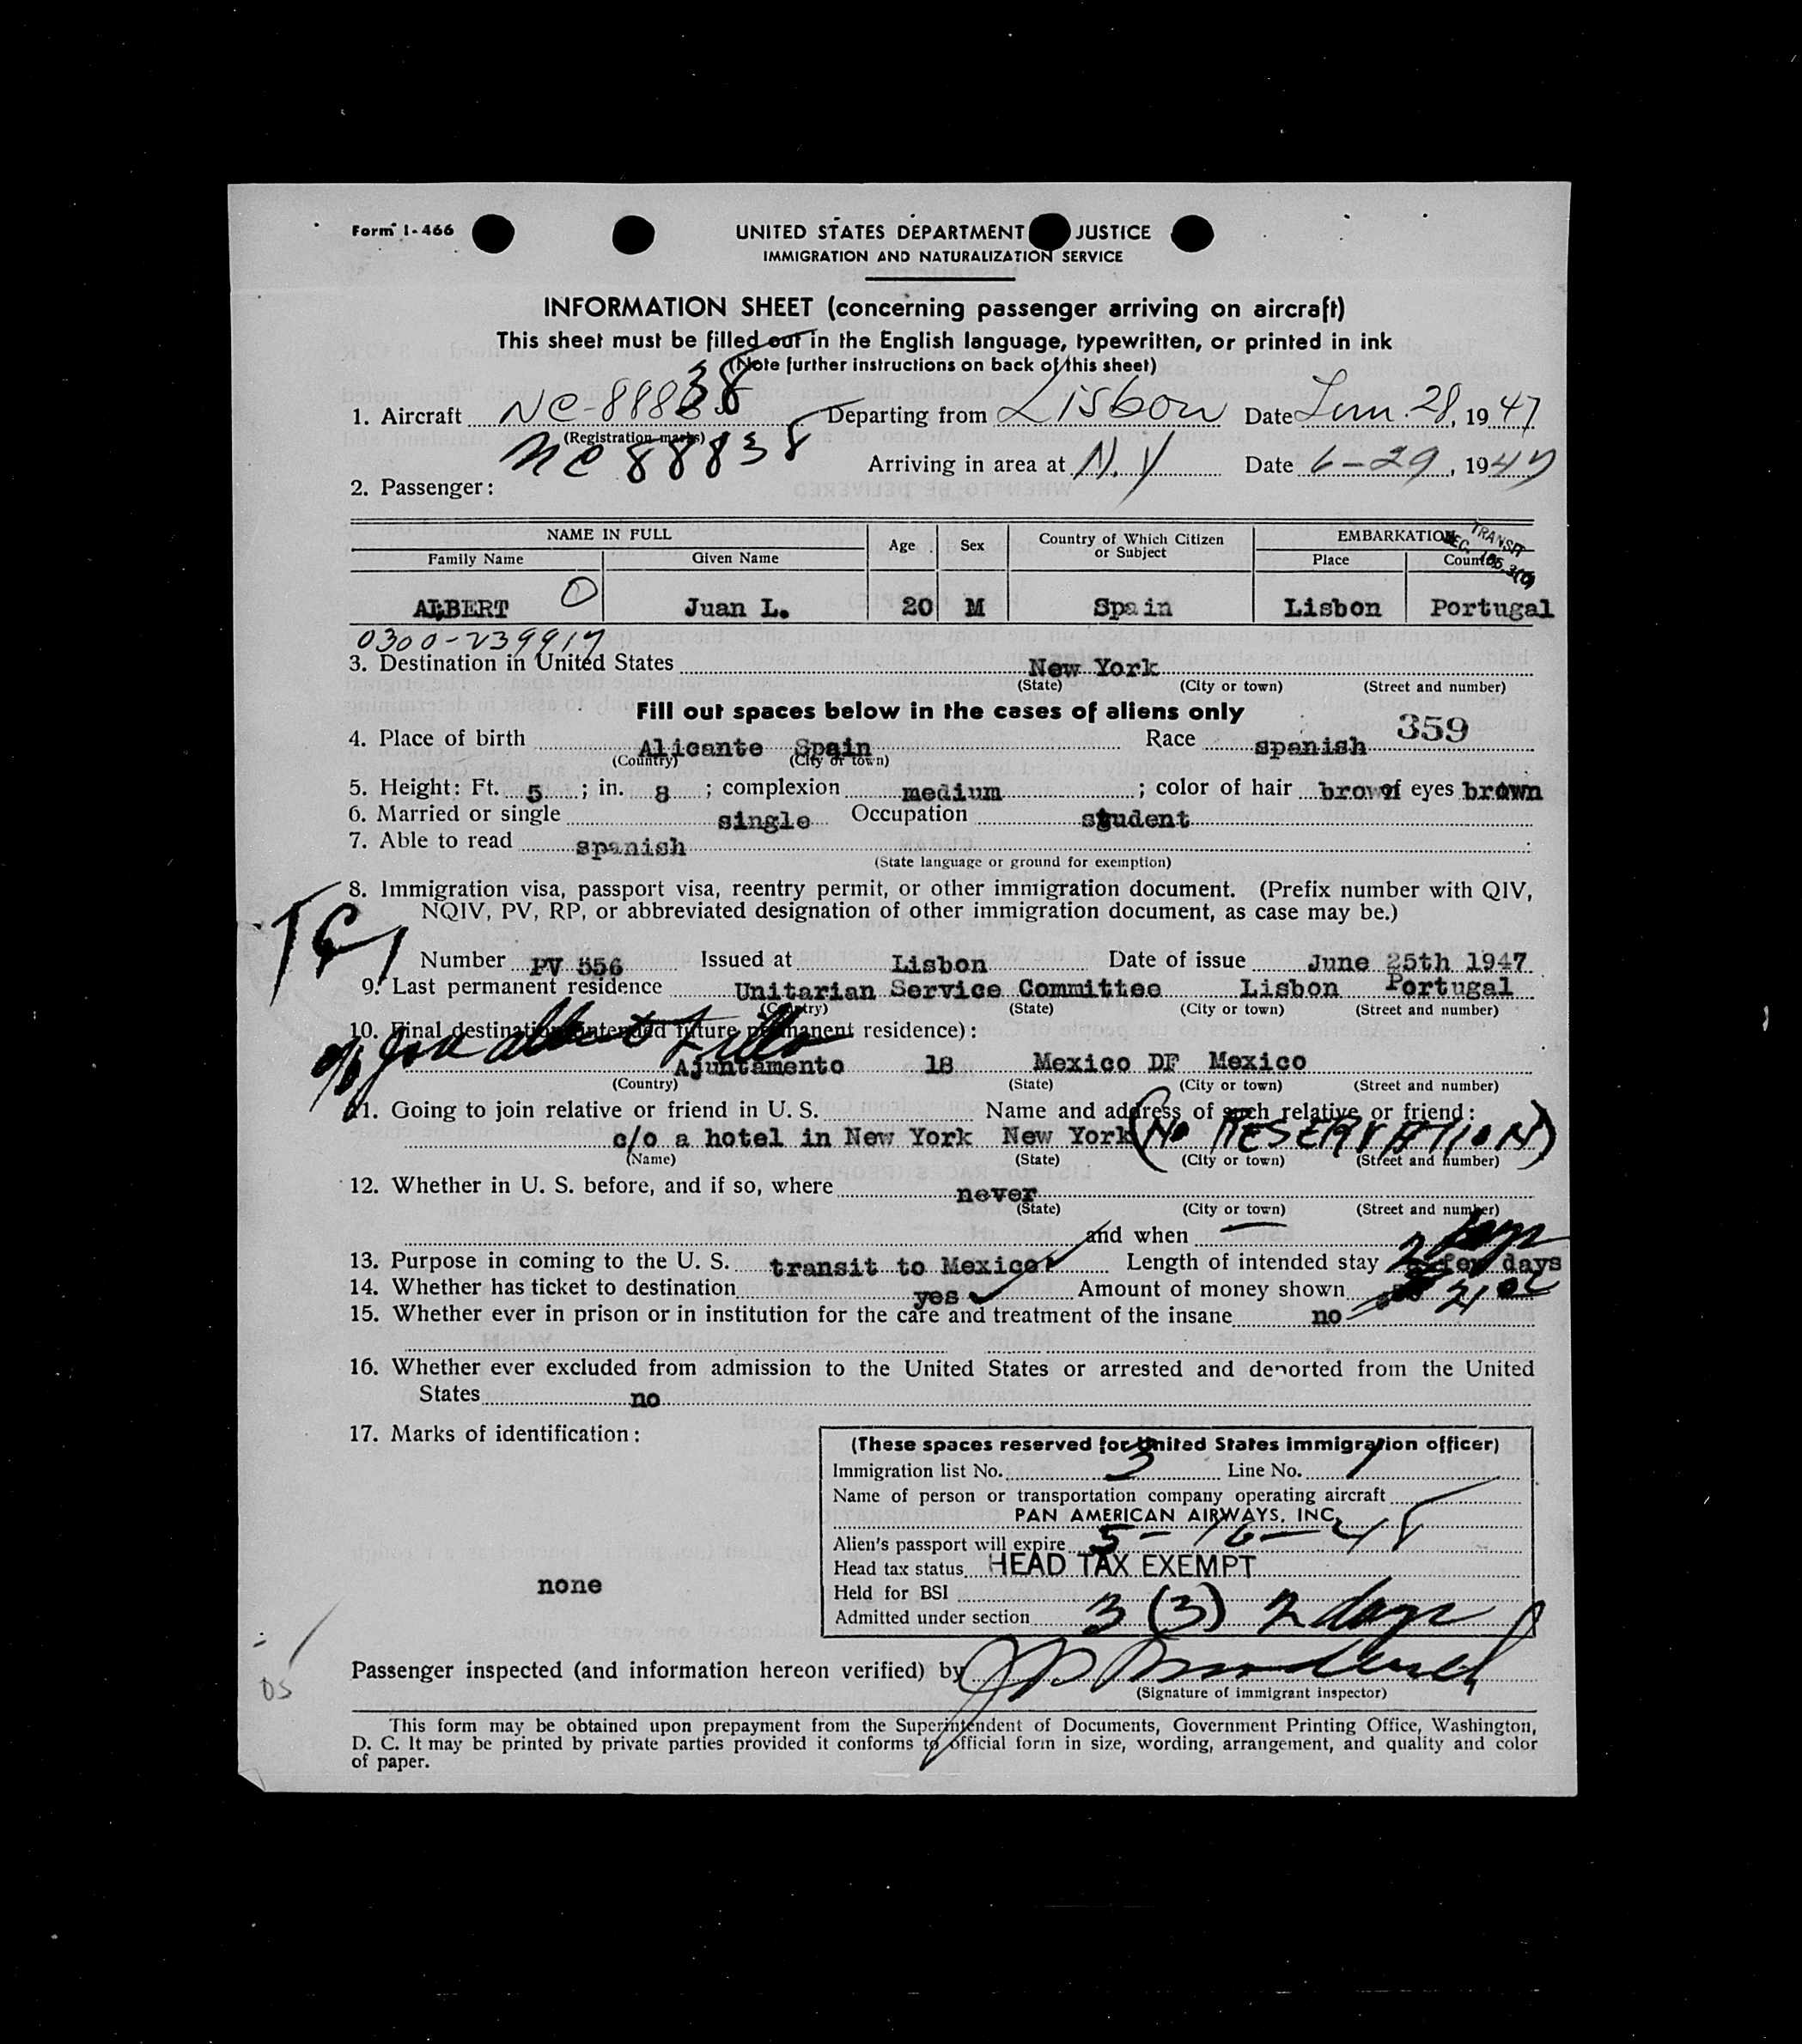 Form I-466
UNITED STATES DEPARTMENT JUSTICE
IMMIGRATION AND NATURALIZATION SERVICE
INFORMATION SHEET (concerning passenger arriving on aircraft)
This sheet must be filled out in the English language, typewritten, or printed in ink
(Note further instructions on back of this sheet)
1. Aircraft NC-88838 Departing from Lisbon Date Jun. 28, 1947
(Registration marks)
NC 88838 Arriving in area at N.Y Date 6-29, 1947
2. Passenger:
NAME IN FULL Age Sex Country of Which Citizen or Subject EMBARKATION TRANSIT
Family Name Given Name Place
ALBERT 0 Juan L. 20 M Spain Lisbon Portugal
0300-239917
3. Destination in United States New York
(State) (City or town) (Street and number)
Fill out spaces below in the cases of aliens only
359
4. Place of birth Alicante Spain Race spanish
(Country) (City or town)
5. Height: Ft. 5; in. 8; complexion medium; color of hair brown of eyes brown
6. Married or single single Occupation student
7. Able to read spanish
(State language or ground for exemption)
8. Immigration visa, passport visa, reentry permit, or other immigration document. (Prefix number with QIV,
NQIV, PV, RP, or abbreviated designation of other immigration document, as case may be.)
Number PV 556 Issued at Lisbon Date of issue June 25th 1947
9. Last permanent residence Unitarian Service Committee Lisbon Portugal
(Country) (State) (City or town) (Street and number)
10. Final destination intended future permanent residence):
Ajuntamento 18 Mexico DF Mexico
(Country) (State) (City or town) (Street and number)
11. Going to join relative or friend in U. S. Name and address of such relative or friend:
c/o a hotel in New York New York (No RESERVATION)
(Name) (State) (City or town) (Street and number)
12. Whether in U. S. before, and if so, where never
(State) (City or town) (Street and number)
and when
13. Purpose in coming to the U. S. transit to Mexico Length of intended stay 2 days few days
14. Whether has ticket to destination yes Amount of money shown
15. Whether ever in prison or in institution for the care and treatment of the insane no
16. Whether ever excluded from admission to the United States or arrested and deported from the United
States no
17. Marks of identification:
none
(These spaces reserved for United States immigration officer)
Immigration list No. 3 Line No. 1
Name of person or transportation company operating aircraft
PAN AMERICAN AIRWAYS, INC.
Alien's passport will expire 5-16-48
Head tax status HEAD TAX EXEMPT
Held for BSI
Admitted under section 3 (3) 2 days
DS
Passenger inspected (and information hereon verified) by
(Signature of immigrant inspector)
This form may be obtained upon prepayment from the Superintendent of Documents, Government Printing Office, Washington,
D. C. It may be printed by private parties provided it conforms to official form in size, wording, arrangement, and quality and color
of paper.